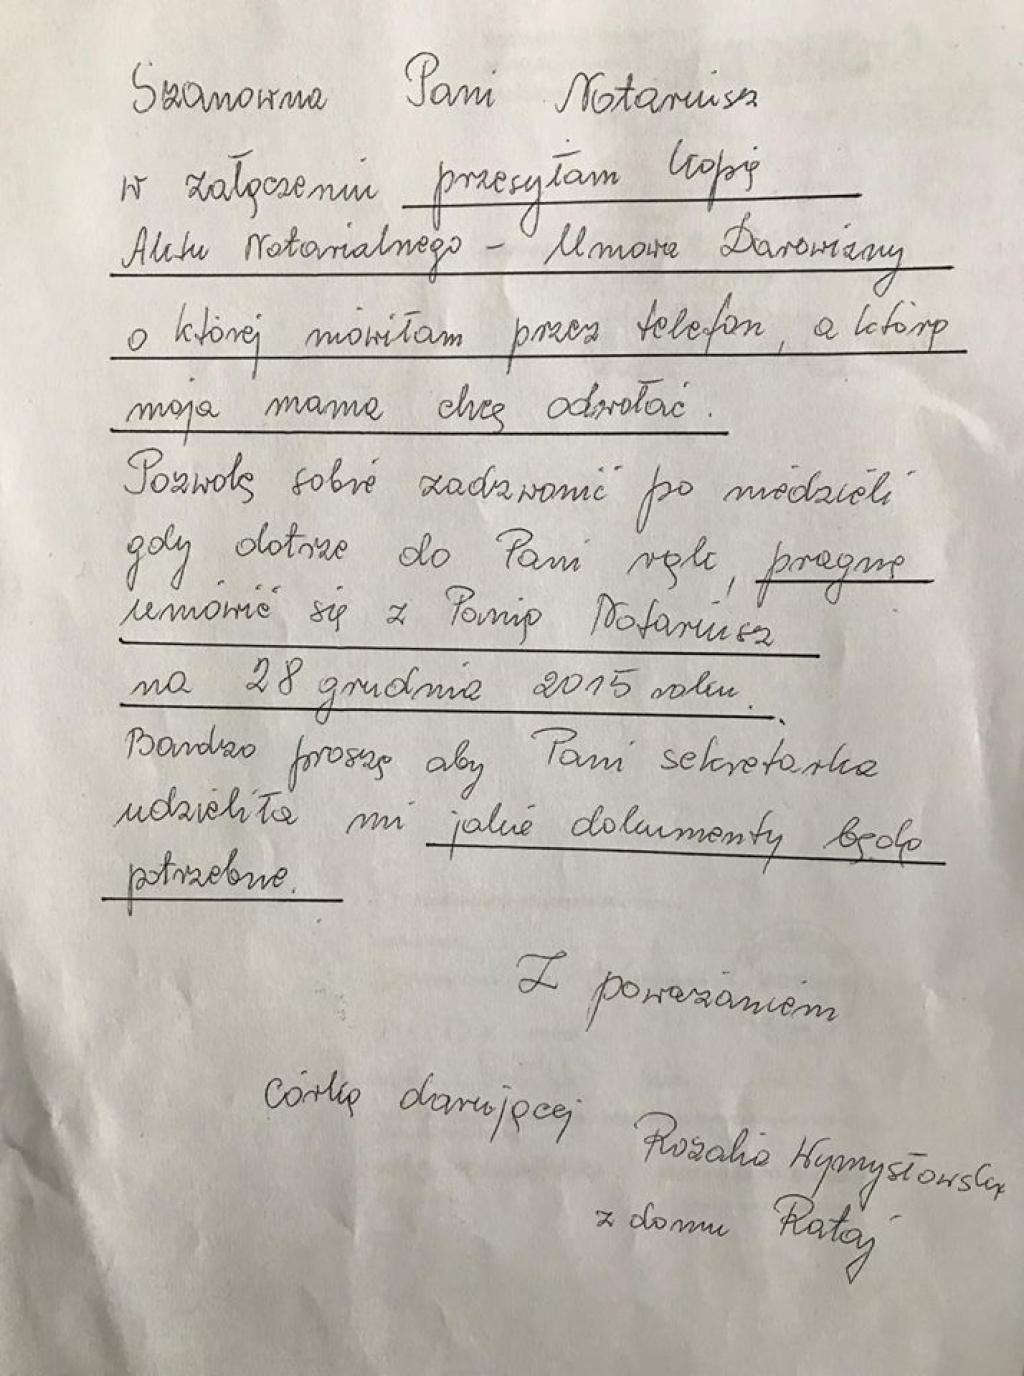 Szanowna Pani Notariusz
w załączeniu przesyłam kopię
Aktu Notarialnego - Umowa Darowizny
o której mówiłam przez telefon, a którą
moja mama chcę odwołać.
Pozwolę sobie zadzwonić po niedzieli
gdy dotrze do Pani ręk, pragnę
umówić się z Panią Notariusz
na 28 grudnia 2015 roku.
Bardzo proszę aby Pani sekretarka
udzieliła mi jakie dokumenty będą
potrzebne.
Z poważaniem
córkę darującej
Rozalia Wymysłowska
z domu Rataj